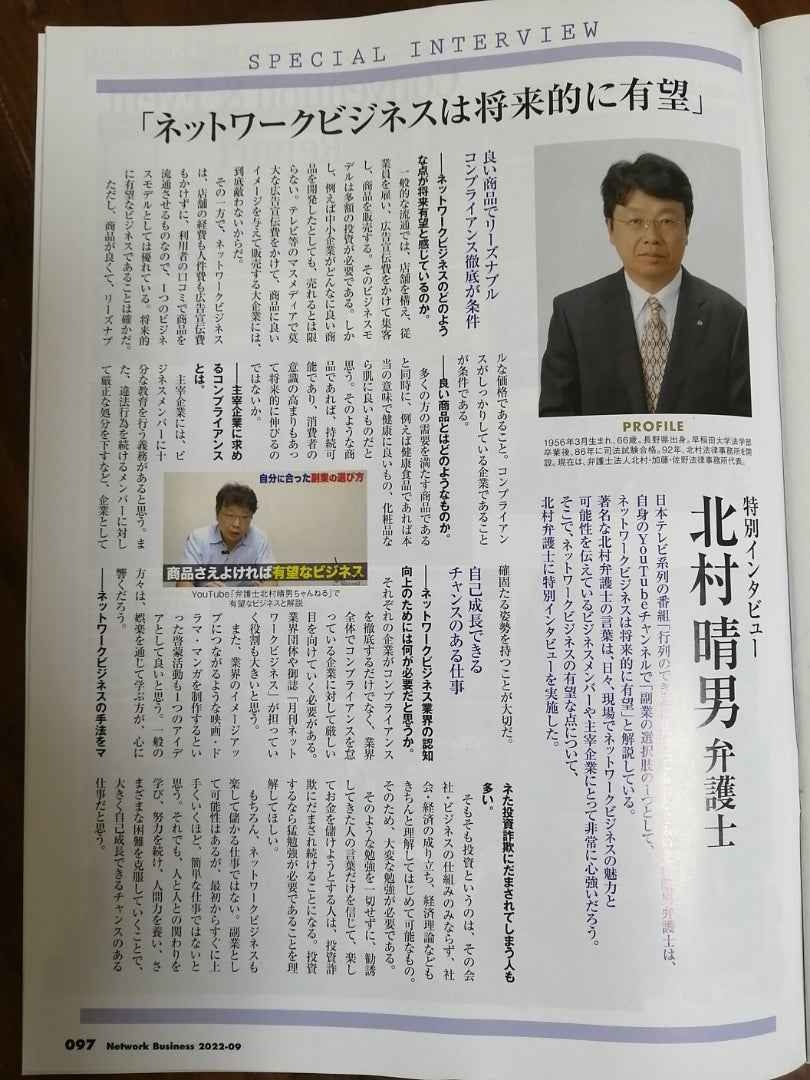 SPECIAL INTERVIEW
「ネットワークビジネスは将来的に有望」
PROFILE
1956年3月生まれ、66歳。長野県出身。早稲田大学法学部
卒業後、86年に司法試験合格。92年、北村法律事務所を開
設。現在は、弁護士法人北村・加藤・佐野法律事務所代表。
特別インタビュー
北村晴男 弁護士
日本テレビ系列の番組「行列のできる
弁護士は、
自身のYouTubeチャンネルで「副業の選択肢の1つとして、
ネットワークビジネスは将来的に有望」と解説している。
著名な北村弁護士の言葉は、日々、現場でネットワークビジネスの魅力と
可能性を伝えているビジネスメンバーや主宰企業にとって非常に心強いだろう。
そこで、ネットワークビジネスの有望な点について、
北村弁護士に特別インタビューを実施した。
良い商品でリーズナブル
コンプライアンス徹底が条件
――ネットワークビジネスのどのよう
な点が将来有望と感じているのか。
一般的な流通では、店舗を構え、従
業員を雇い、広告宣伝費をかけて集客
し、商品を販売する。そのビジネスモ
デルは多額の投資が必要である。しか
し、例えば中小企業がどんなに良い商
品を開発したとしても、売れるとは限
らない。テレビ等のマスメディアで莫
大な広告宣伝費をかけて、商品に良い
イメージを与えて販売する大企業には、
到底敵わないからだ。
その一方で、ネットワークビジネス
は、店舗の経費も人件費も広告宣伝費
もかけずに、利用者の口コミで商品を
流通させるものなので、1つのビジネ
スモデルとしては優れている。将来的
に有望なビジネスであることは確かだ。
ただし、商品が良くて、リーズナブ
ルな価格であること。コンプライアン
スがしっかりしている企業であること
が条件である。
――良い商品とはどのようなものか。
多くの方の需要を満たす商品である
と同時に、例えば健康食品であれば本
当の意味で健康に良いもの、化粧品な
ら肌に良いものだと
思う。そのような商
品であれば、持続可
能であり、消費者の
意識の高まりもあっ
て将来的に伸びるの
ではないか。
――主宰企業に求め
るコンプライアンス
とは。
主宰企業には、ビ
ジネスメンバーに十
分な教育を行う義務があると思う。ま
た、違法行為を続けるメンバーに対し
て厳正な処分を下すなど、企業として
確固たる姿勢を持つことが大切だ。
自分に合った副業の選び方
商品さえよければ有望なビジネス
YouTube「弁護士北村晴男ちゃんねる」で
有望なビジネスと解説
自己成長できる
チャンスのある仕事
――ネットワークビジネス業界の認知
向上のためには何が必要だと思うか。
それぞれの企業がコンプライアンス
を徹底するだけでなく、業界
全体でコンプライアンスを怠
っている企業に対して厳しい
目を向けていく必要がある。
業界団体や御誌「月刊ネット
ワークビジネス」が担ってい
く役割も大きいと思う。
また、業界のイメージアッ
プにつながるような映画・ド
ラマ・マンガを制作するとい
った啓蒙活動も1つのアイデ
アとして良いと思う。一般の
方々は、娯楽を通じて学ぶ方が、心に
響くだろう。
――ネットワークビジネスの手法をマ
ネた投資詐欺にだまされてしまう人も
多い。
そもそも投資というのは、その会
社・ビジネスの仕組みのみならず、社
会・経済の成り立ち、経済理論なども
きちんと理解してはじめて可能なもの。
そのため、大変な勉強が必要である。
そのような勉強を一切せずに、勧誘
してきた人の言葉だけを信じて、楽し
てお金を儲けようとする人は、投資詐
欺にだまされ続けることになる。投資
するなら猛勉強が必要であることを理
解してほしい。
もちろん、ネットワークビジネスも
楽して儲かる仕事ではない。副業とし
て可能性はあるが、最初からすぐに上
手くいくほど、簡単な仕事ではないと
思う。それでも、人と人との関わりを
学び、努力を続け、人間力を養い、さ
まざまな困難を克服していくことで、
大きく自己成長できるチャンスのある
仕事だと思う。
097 Network Business 2022-09